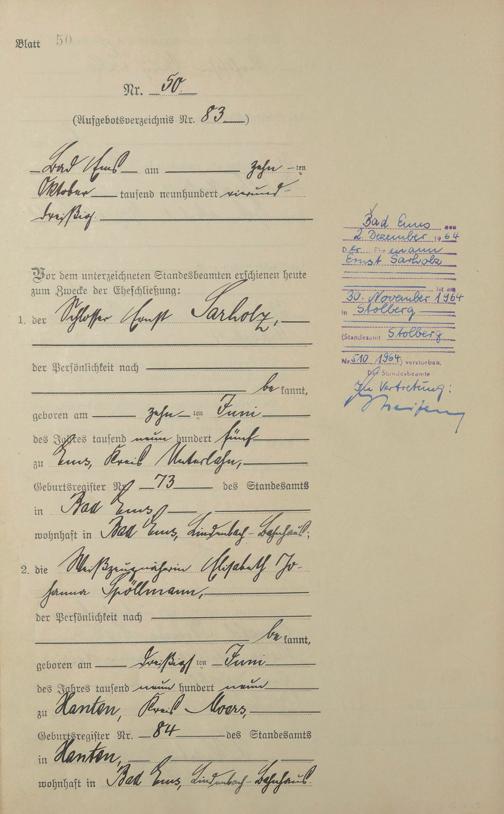 Blatt 50
Nr. 50
(Aufgebotsverzeichnis Nr. 83)
Bad Ems am zehn ten
Oktober tausend neunhundert vierund-
dreißig
Vor dem unterzeichneten Standesbeamten erschienen heute
zum Zwecke der Eheschließung:
1. der Schlosser Ernst Sarholz,
der Persönlichkeit nach
be kannt,
geboren am zehn ten Juni
des Jahres tausend neun hundert fünf
zu Ems, Kreis Unterlahn,
Geburtsregister Nr. 73 des Standesamts
in Bad Ems
wohnhaft in Bad Ems, Lindenbach-Bahnhaus;
2. die Weißzeugnäherin Elisabeth Jo-
hanna Spöllmann,
der Persönlichkeit nach
be kannt,
geboren am dreißigs ten Juni
des Jahres tausend neun hundert neun
zu Xanten, Kreis Moers,
Geburtsregister Nr. 84 des Standesamts
in Xanten,
wohnhaft in Bad Ems, Lindenbach-Bahnhaus.
Bad Ems, am
2. Dezember 1964
Der Ehemann
Ernst Sarholz
ist am
30. November 1964
in Stolberg
(Standesamt Stolberg
Nr. 510/1964) verstorben.
Der Standesbeamte
In Vertretung: